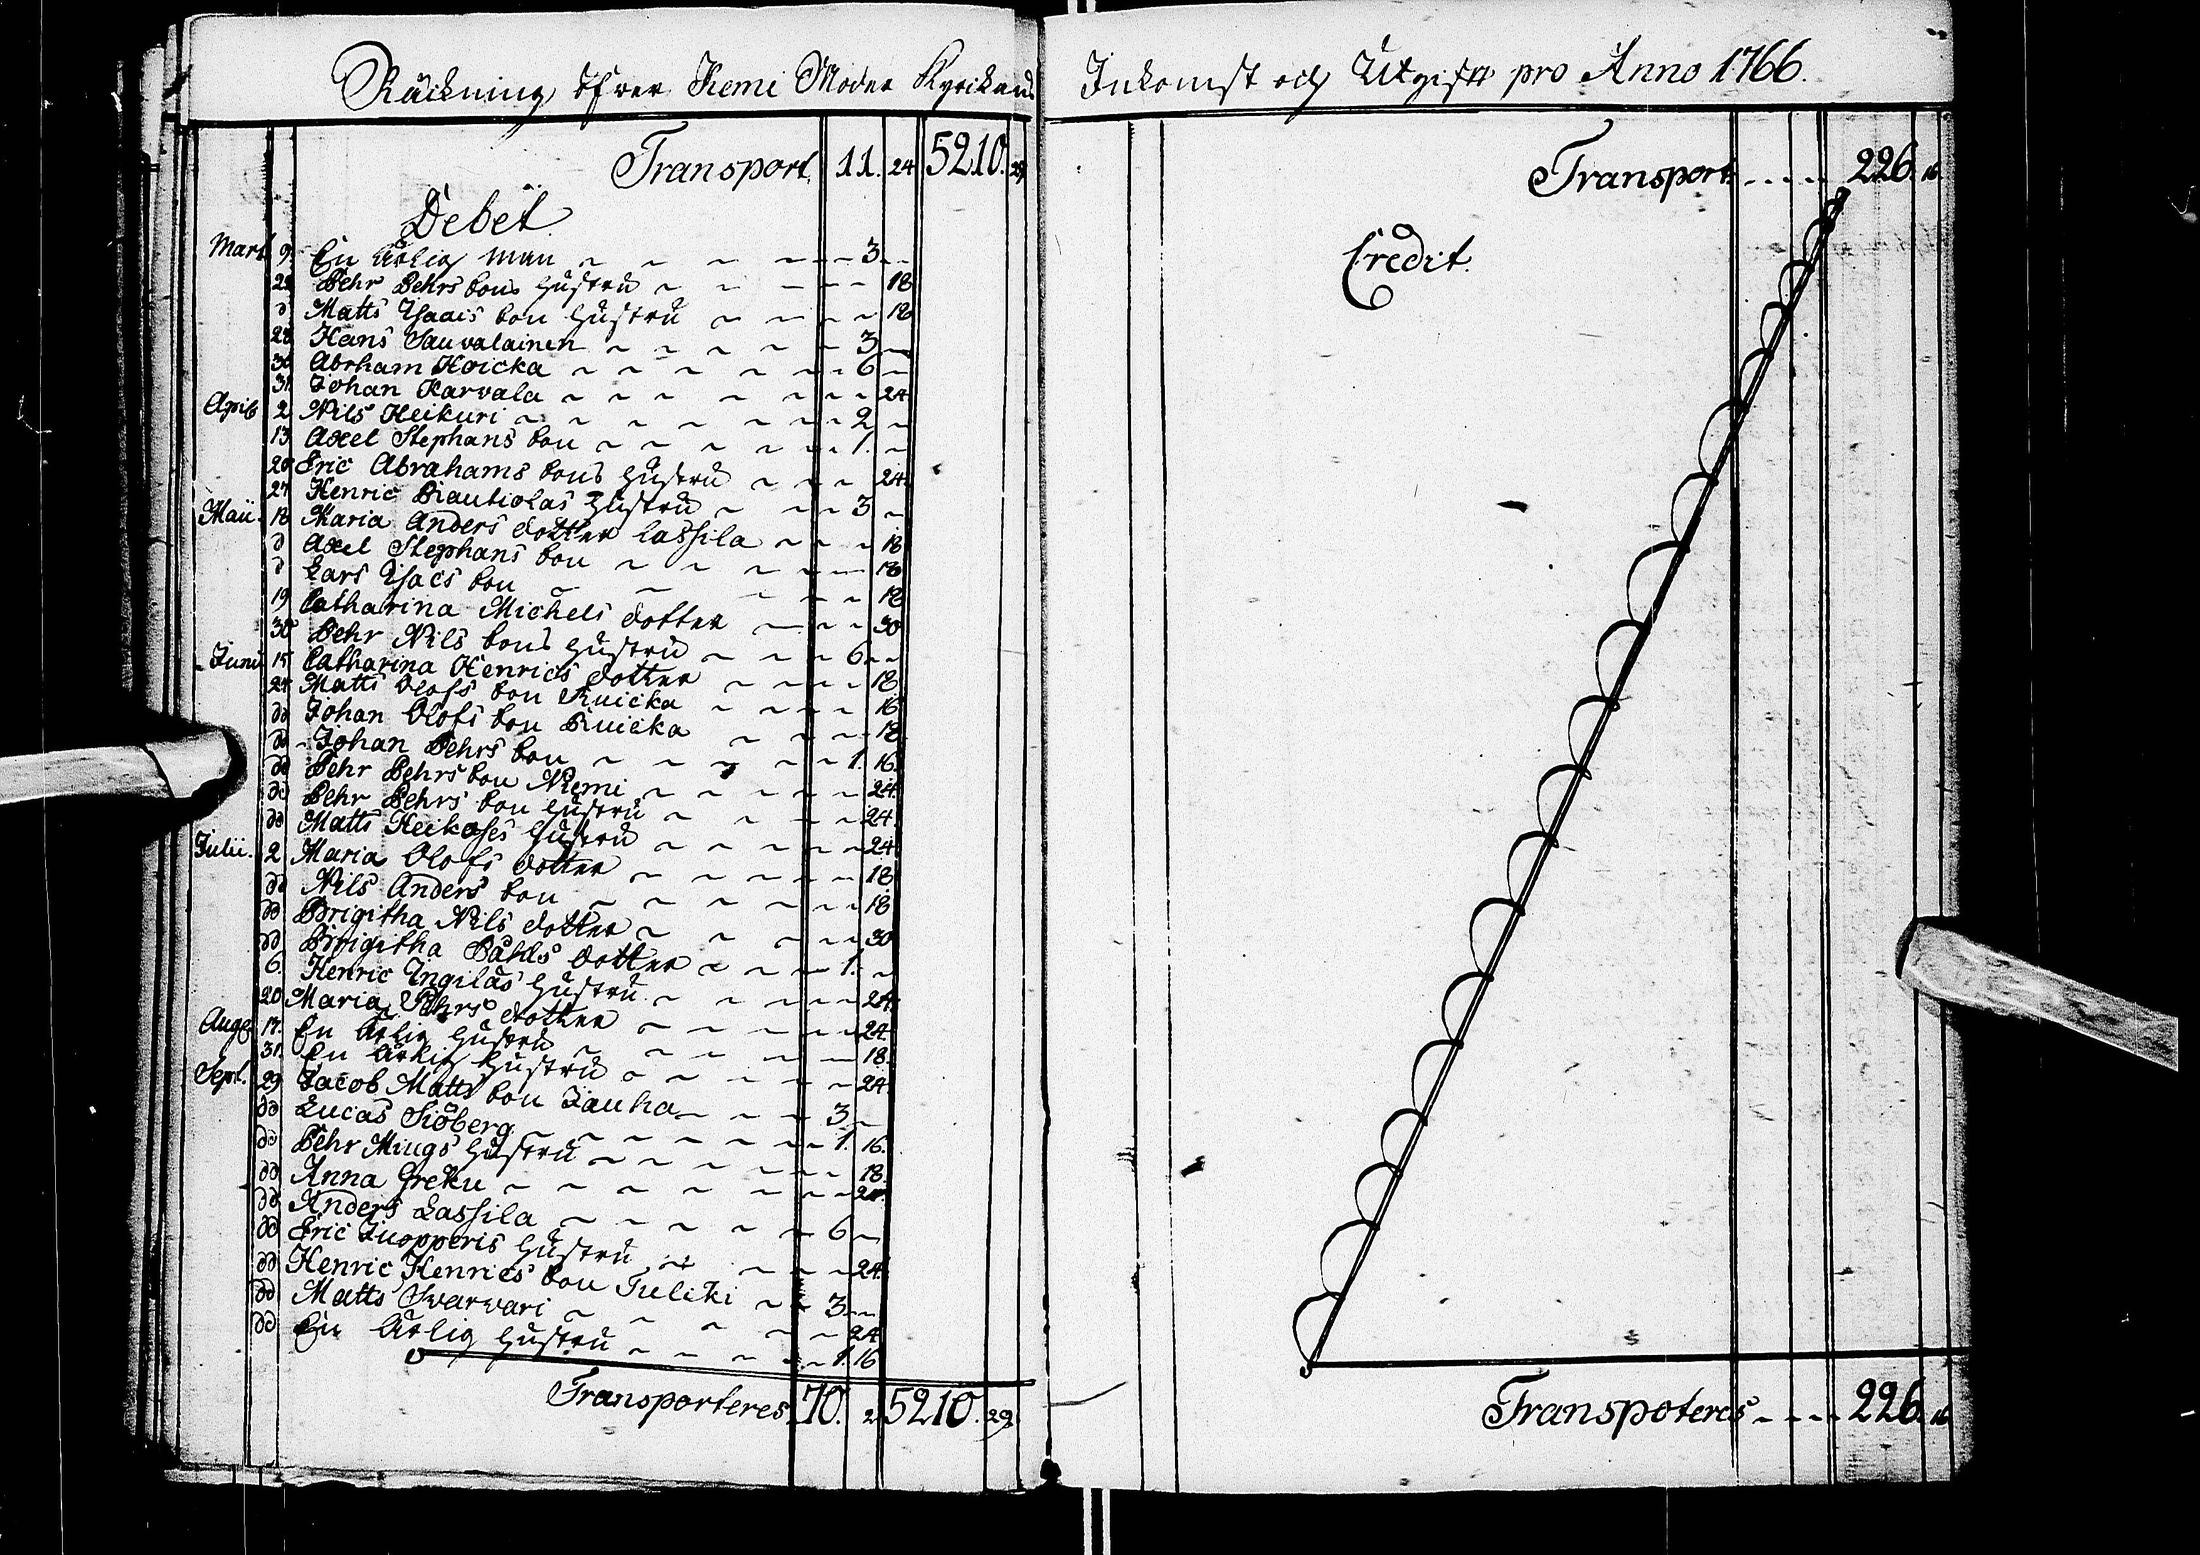 Räckning öfver Kemi Moder Kyrickans Inkomst och Utgift pro Anno 1766.
Transport 11. 24 5210. 29
Debet
Mart. 9. En ärlig man 3
Pehr Pehrs sons hustru 18
d Matts Isaacs son hustru 18
28 Hans Sauvalainen 3
30 Abrham Hoicka 6
31 Johan Karvala 24
April 2 Nils Heikuri 2
13 Axel Stephans son 1.
20 Eric Abrahams sons hustru 24
27 Henric hustru 3
Maii. 18 Maria Anders dotter Lassila 18
d Axel Stephans son 18
d Lars Isacs son 18
19 Catharina Michels dotter 30
30 Pehr Nils sons hustru 6
Junii 15 Catharina Henrics dotter 18
24 Matts Olofs son 16
dd Johan Olofs son 18
dd Johan Pehrs son 1. 16
dd Pehr Pehrs son Niemi 24
dd Pehr Pehrs son hustru 24
dd Matts hustru 24
Julii. 2 Maria Olofs dotter 18
dd Nils Anders son 18
dd Brigitha Nils dotter 30
dd Brigitha dotter 1.
6. Henric Ingilas hustru 24
20 Maria Pehrs dotter 24
Aug. 17. En ärlig hustru 18
31. En ärlig hustru 24
Sept. 29 Jacob Matts son Jauha 3
dd Lucas Siöberg 1. 16
dd Pehr hustru 18
dd Anna Greku
dd Anders Lassila 6
dd Eric Juopperis hustru 24
dd Henric Henrics son Tuliki 3
dd Matts Svarvari 24
dd En ärlig hustru 1. 16
Transporteres 70. 2 5210. 29
Transport 226. 16
Credit.
Transpoteres 226. 16